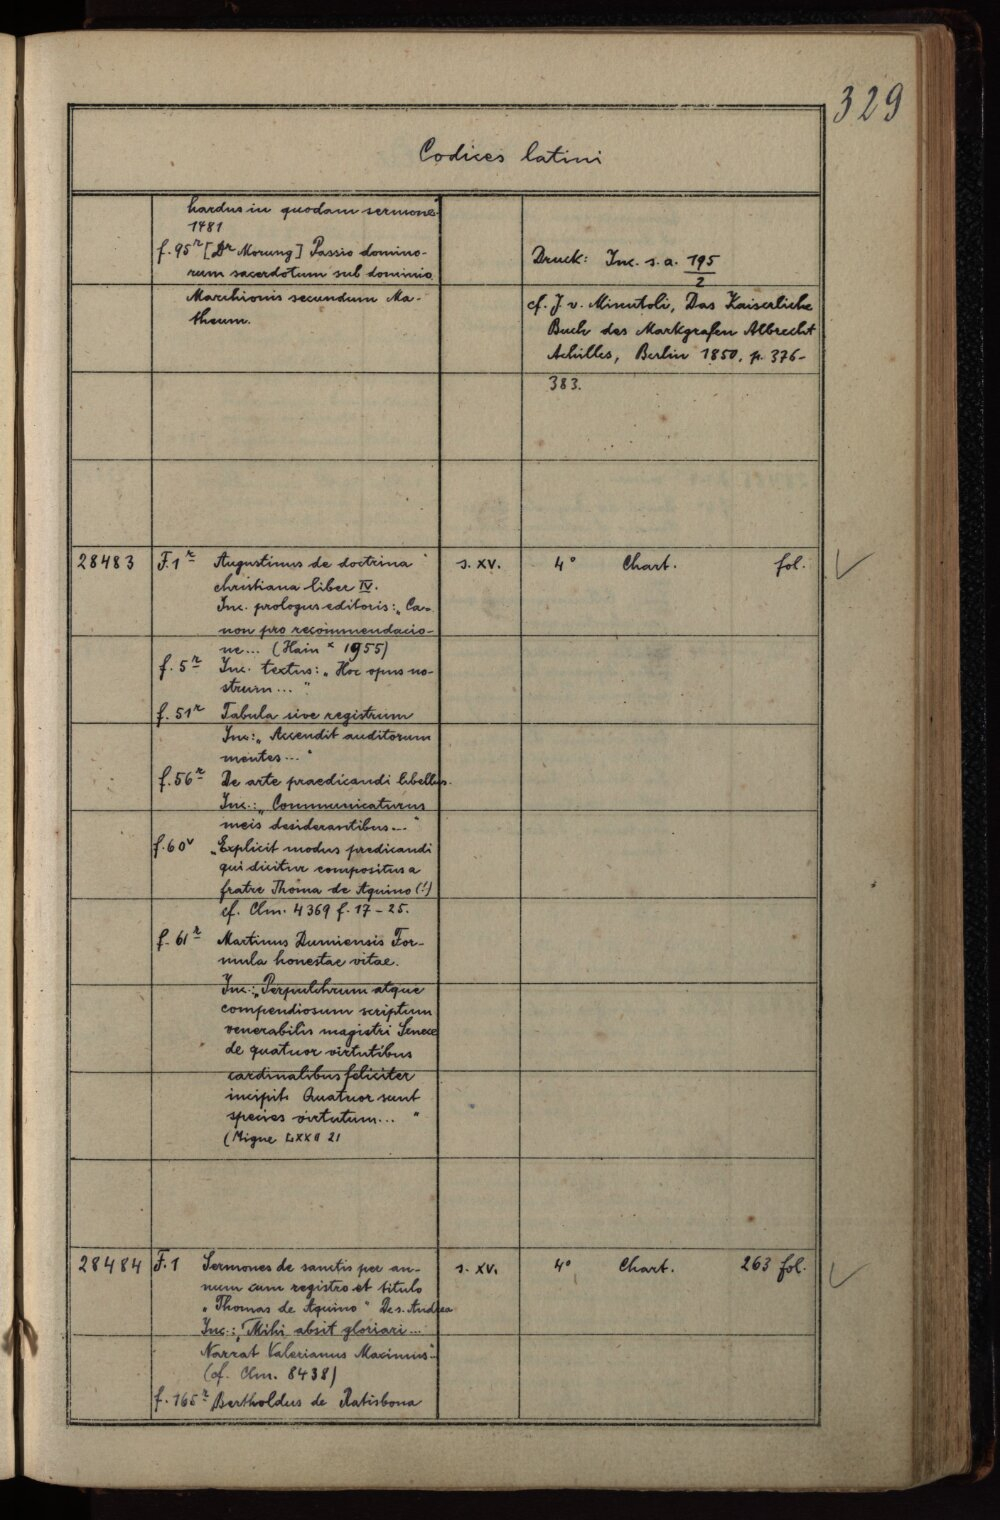 329
Codices latini
hardus in quodam sermone"
1481
f. 95r [Dr Morung] Passio domino-
rum sacerdotum sub dominio
Marchionis secundum Ma-
theum.
Druck: Inc. s. a. 195/2
cf. J. v. Minutoli, Das Kaiserliche
Buch des Markgrafen Albrecht
Achilles, Berlin 1850, p. 376-
383.
28483 F. 1r Augustinus de doctrina s. XV. 4° Chart. fol.
christiana liber IV.
Inc. prologus editoris: „Ca-
non pro recommendacio-
ne... (Hain * 1955)
f. 5r Inc. textus: „Hoc opus no-
strum..."
f. 51r Tabula sive registrum
Inc: „Accendit auditorum
mentes..."
f. 56r De arte praedicandi libellus.
Inc.: „Communicaturus
meis desiderantibus..."
f. 60v „Explicit modus predicandi
qui dicitur compositus a
fratre Thoma de Aquino (!)
cf. Clm. 4369 f. 17-25.
f. 61r Martinus Dumiensis For-
mula honestae vitae.
Inc.: „Perpulchrum atque
compendiosum scriptum
venerabilis magistri Senece
de quatuor virtutibus
cardinalibus feliciter
incipit. Quatuor sunt
species virtutum..."
(Migne LXXII 21
28484 F. 1 Sermones de sanctis per an- s. XV. 4° Chart. 263 fol.
num cum registro et titulo
„Thomas de Aquino" De s. Andrea
Inc.: „Mihi absit gloriari...
Narrat Valerianus Maximus"
(cf. Clm. 8438)
f. 165r Bertholdus de Ratisbona